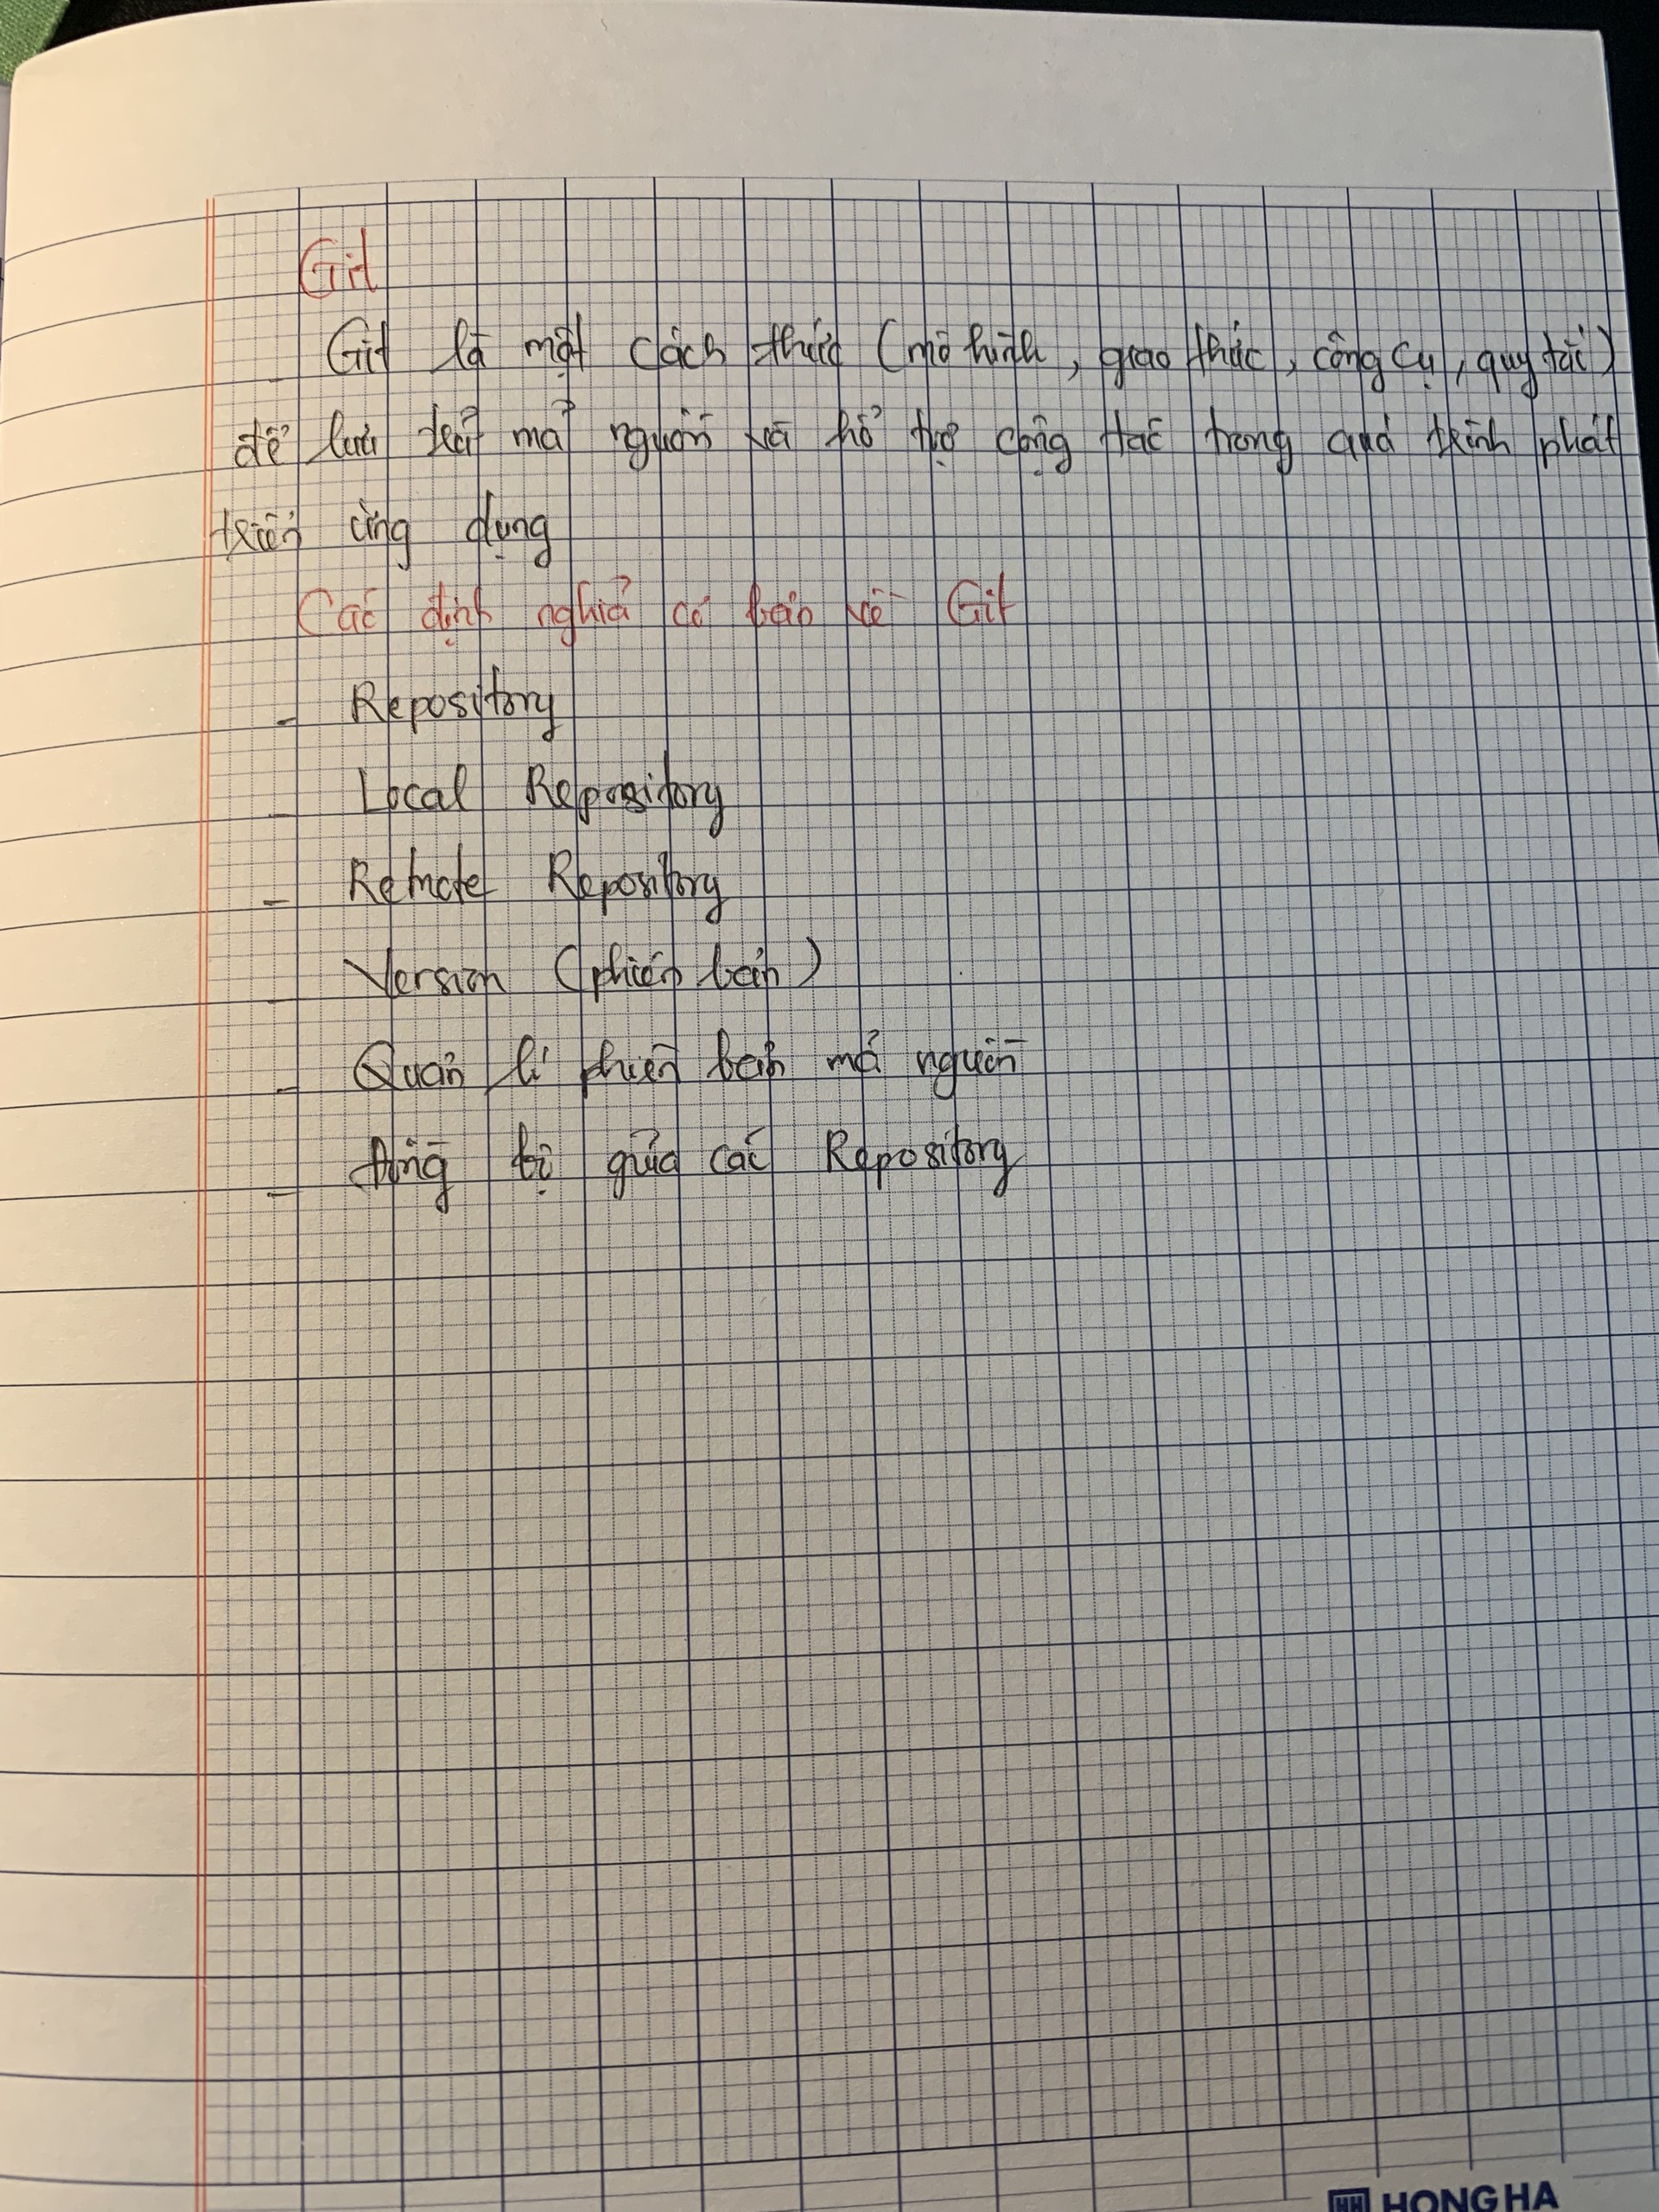 Git
- Git là một cách thức (mô hình, giao thức, công cụ, quy tắc)
để lưu trữ mã nguồn và hỗ trợ cộng tác trong quá trình phát
triển ứng dụng
Các định nghĩa cơ bản về Git
- Repository
- Local Repository
- Remote Repository
- Version (phiên bản)
- Quản lí phiên bản mã nguồn
- Đồng bộ giữa các Repository
HH HONG HA